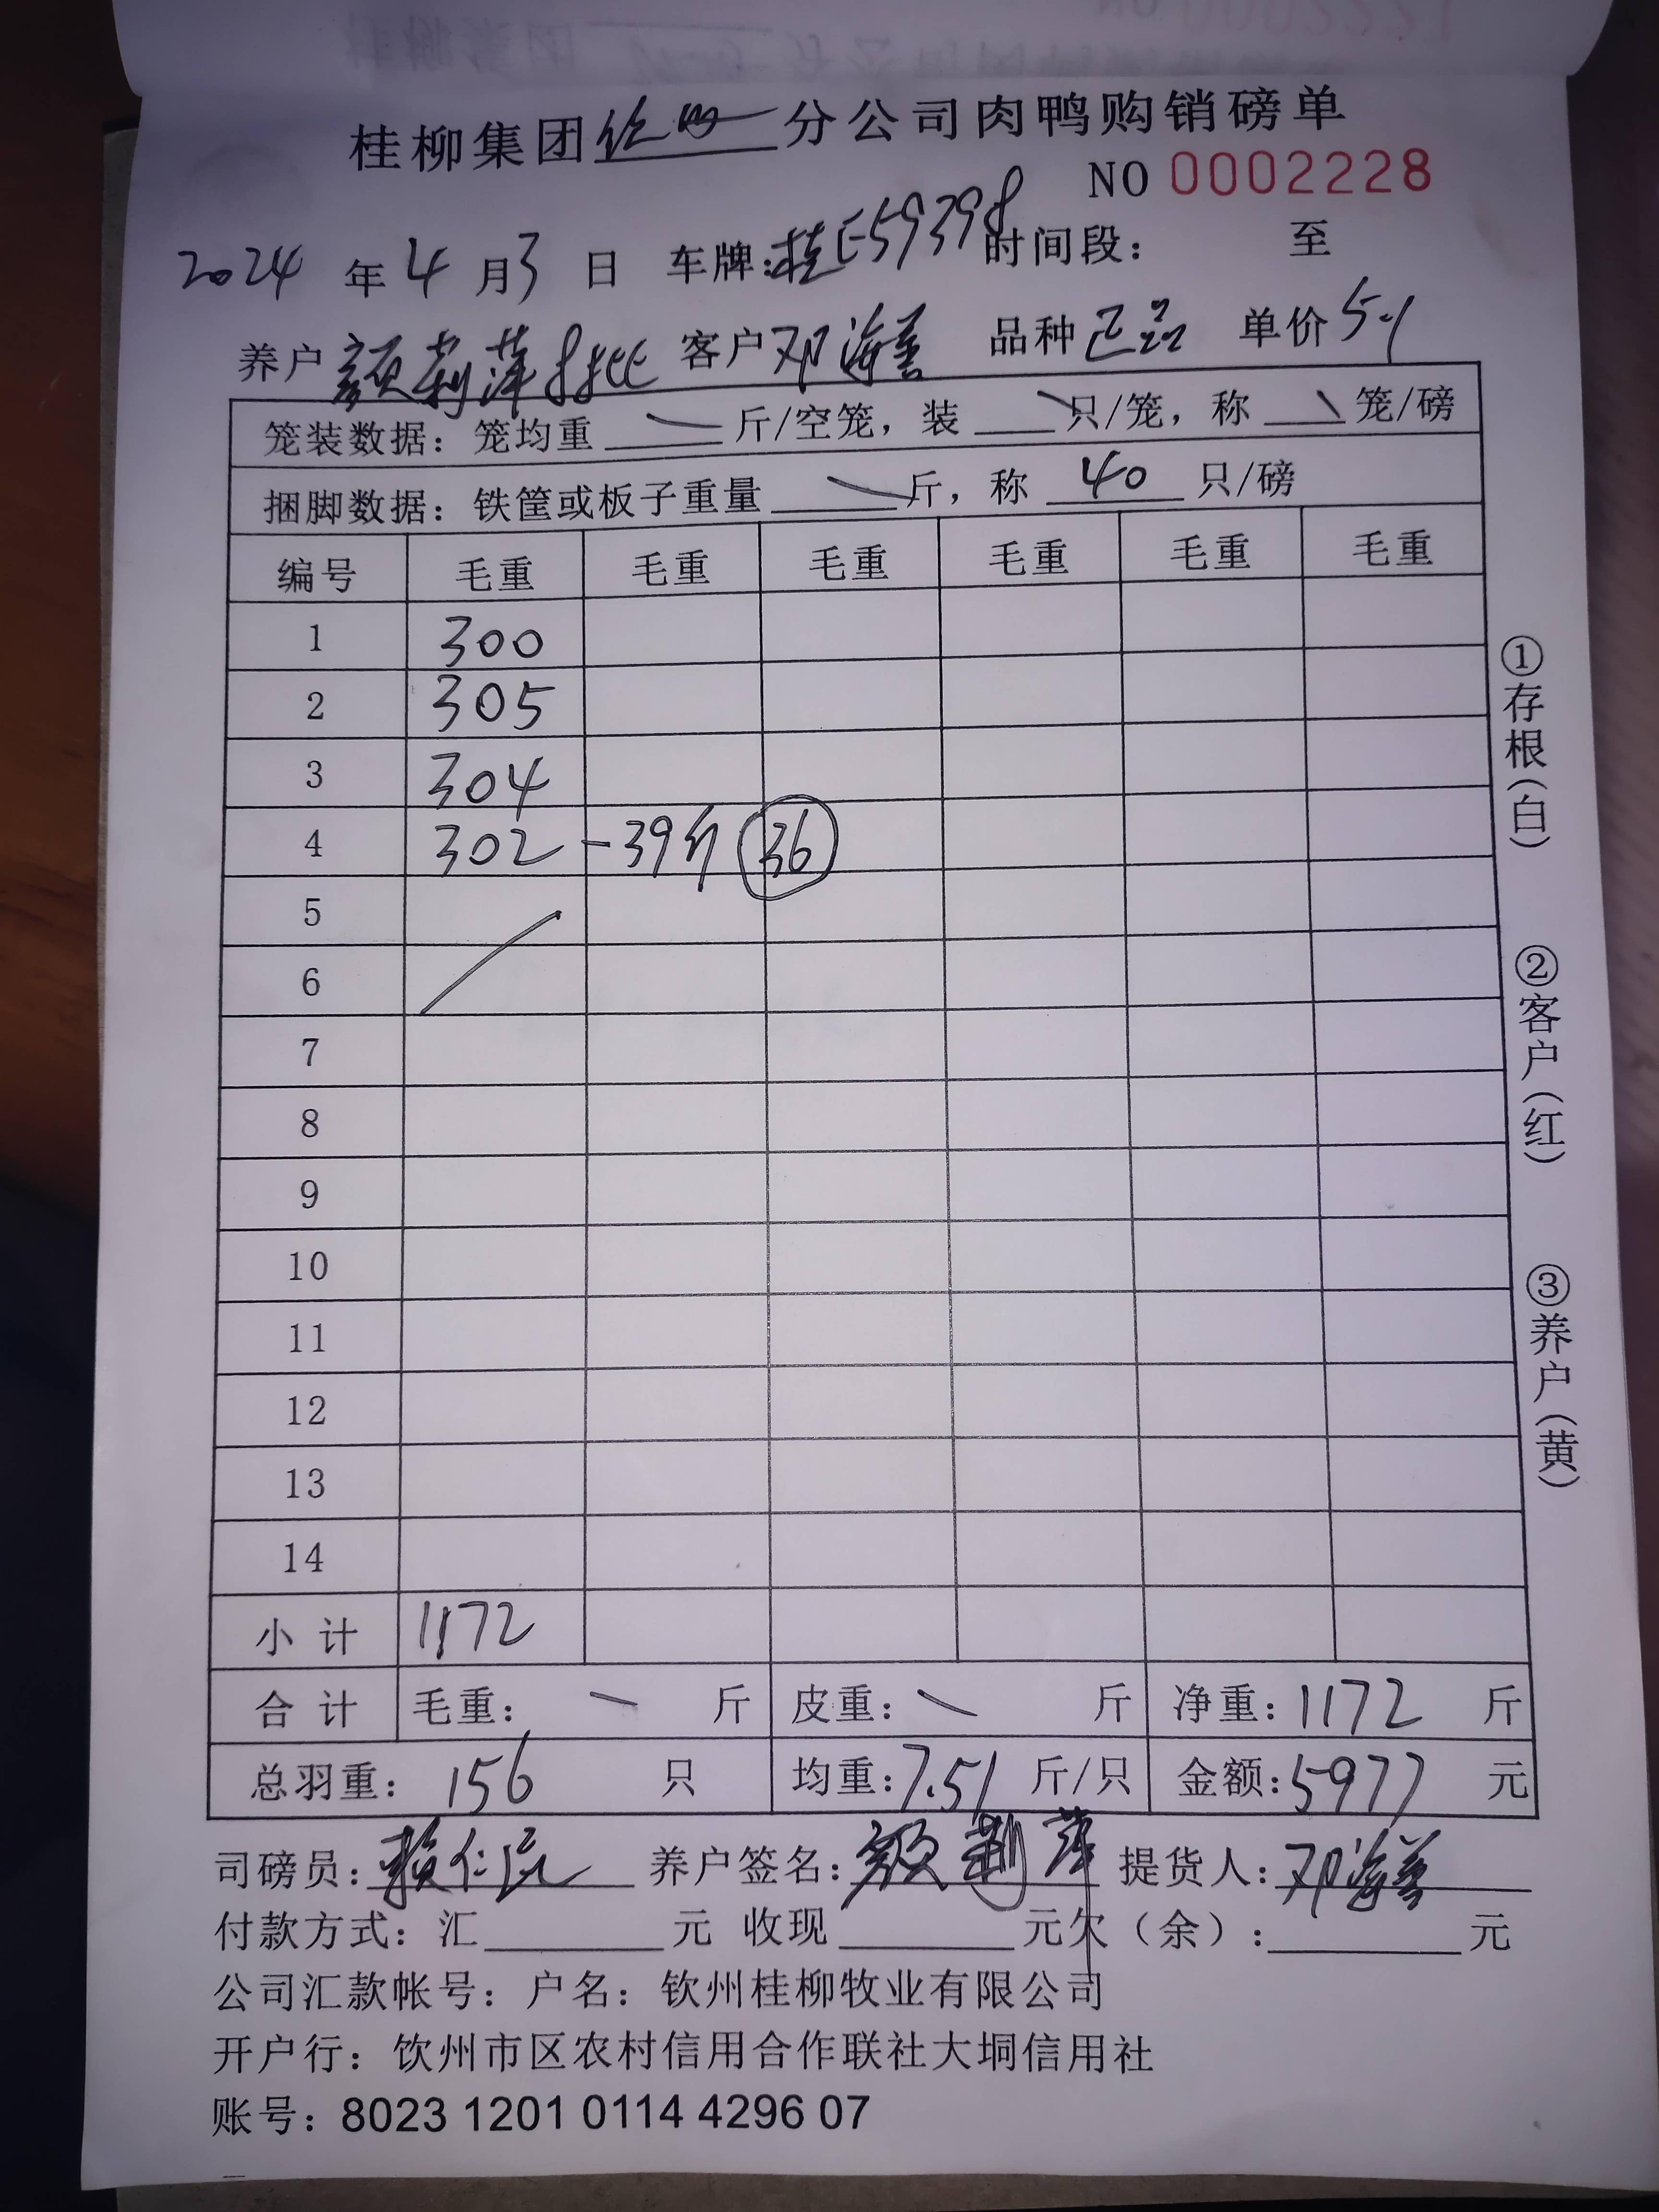 桂柳集团 分公司肉鸭购销磅单
NO 0002228
2024 年 4 月 3 日 车牌:桂E59398 时间段: 至
养户 颜莉萍 客户 邓海善 品种 正品 单价 5.1
笼装数据: 笼均重 斤/空笼, 装 只/笼, 称 笼/磅
捆脚数据: 铁筐或板子重量 斤, 称 40 只/磅
编号 毛重 毛重 毛重 毛重 毛重 毛重
1 300
2 305
3 304
4 302 -39斤 36
5
6
7
8
9
10
11
12
13
14
小计 1172
合计 毛重: 斤 皮重: 斤 净重: 1172 斤
总羽重: 156 只 均重: 7.51 斤/只 金额: 5977 元
司磅员: 赖仁 养户签名: 颜莉萍 提货人: 邓海善
付款方式: 汇 元 收现 元欠(余): 元
公司汇款帐号: 户名: 钦州桂柳牧业有限公司
开户行: 钦州市区农村信用合作联社大垌信用社
账号: 8023 1201 0114 4296 07
①存根(白)
②客户(红)
③养户(黄)